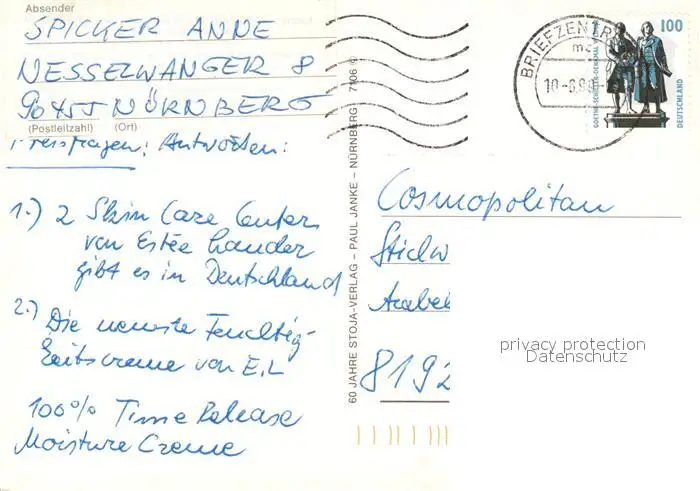 Absender
SPICKER ANNE
NESSELWANGER 8
90455 NÜRNBERG
(Postleitzahl) (Ort)
Preisfragen: Antworten:
1.) 2 Skin Care Center
von Estée Lauder
gibt es in Deutschland
2.) Die neueste Feuchtig-
keitscreme von E.L
100% Time Release
Moisture Creme
60 JAHRE STOJA-VERLAG – PAUL JANKE – NÜRNBERG 7106 ©
BRIEFZENTR
10-8.98
100
GOETHE-SCHILLER-DENKMAL
DEUTSCHLAND
Cosmopolitan
Stichw
Arabel
8192
privacy protection
Datenschutz